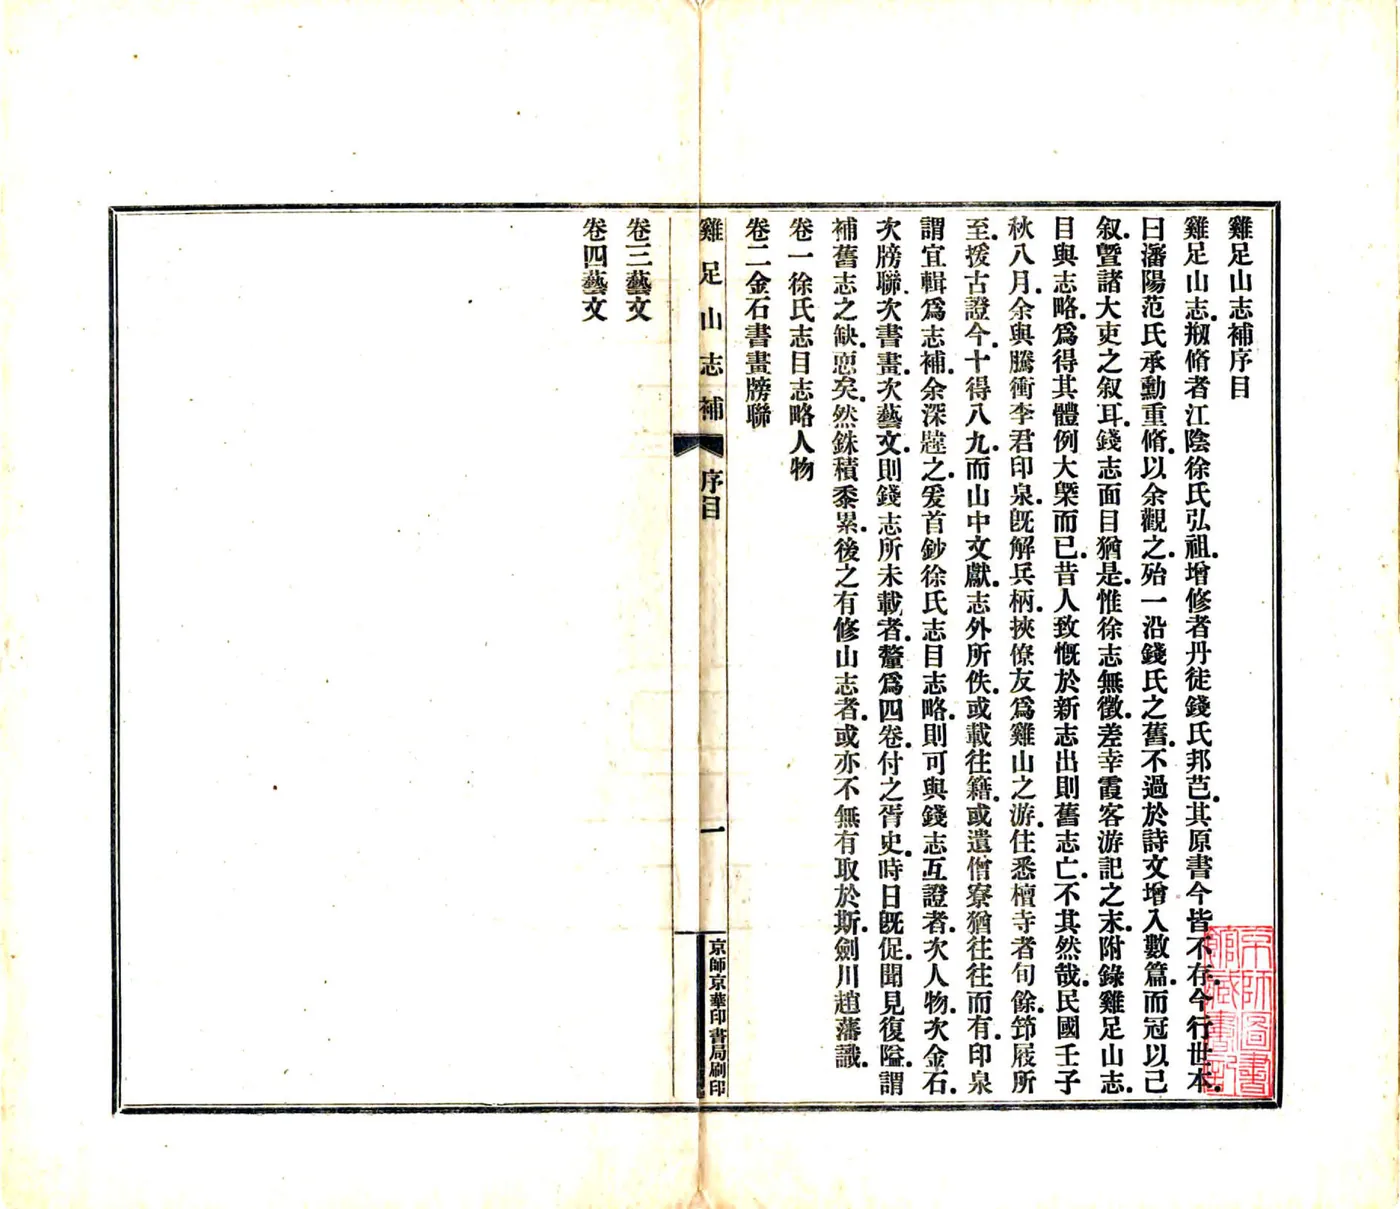 雞足山志補序目
雞足山志.剏脩者江陰徐氏弘祖.增修者丹徒錢氏邦芑.其原書今皆不存.今行世本.
曰瀋陽范氏承勳重脩.以余觀之.殆一沿錢氏之舊.不過於詩文增入數篇.而冠以己
叙.曁諸大吏之叙耳.錢志面目猶是.惟徐志無徵.差幸霞客游記之末.附錄雞足山志.
目與志略.爲得其體例大槩而已.昔人致慨於新志出則舊志亡.不其然哉.民國壬子
秋八月.余與騰衝李君印泉.旣解兵柄.挾僚友爲雞山之游.住悉檀寺者旬餘.笻屐所
至.援古證今.十得八九.而山中文獻.志外所佚.或載往籍.或遺僧寮.猶往往而有.印泉
謂宜輯爲志補.余深韙之.爰首鈔徐氏志目志略.則可與錢志互證者.次人物.次金石.
次牓聯.次書畫.次藝文.則錢志所未載者.釐爲四卷.付之胥史.時日旣促.聞見復隘.謂
補舊志之缺.恧矣.然銖積黍累.後之有修山志者.或亦不無有取於斯.劍川趙藩識.
卷一徐氏志目志略人物
卷二金石書畫牓聯
雞足山志補
序目
一
京師京華印書局刷印
卷三藝文
卷四藝文
京師圖書
館藏書記